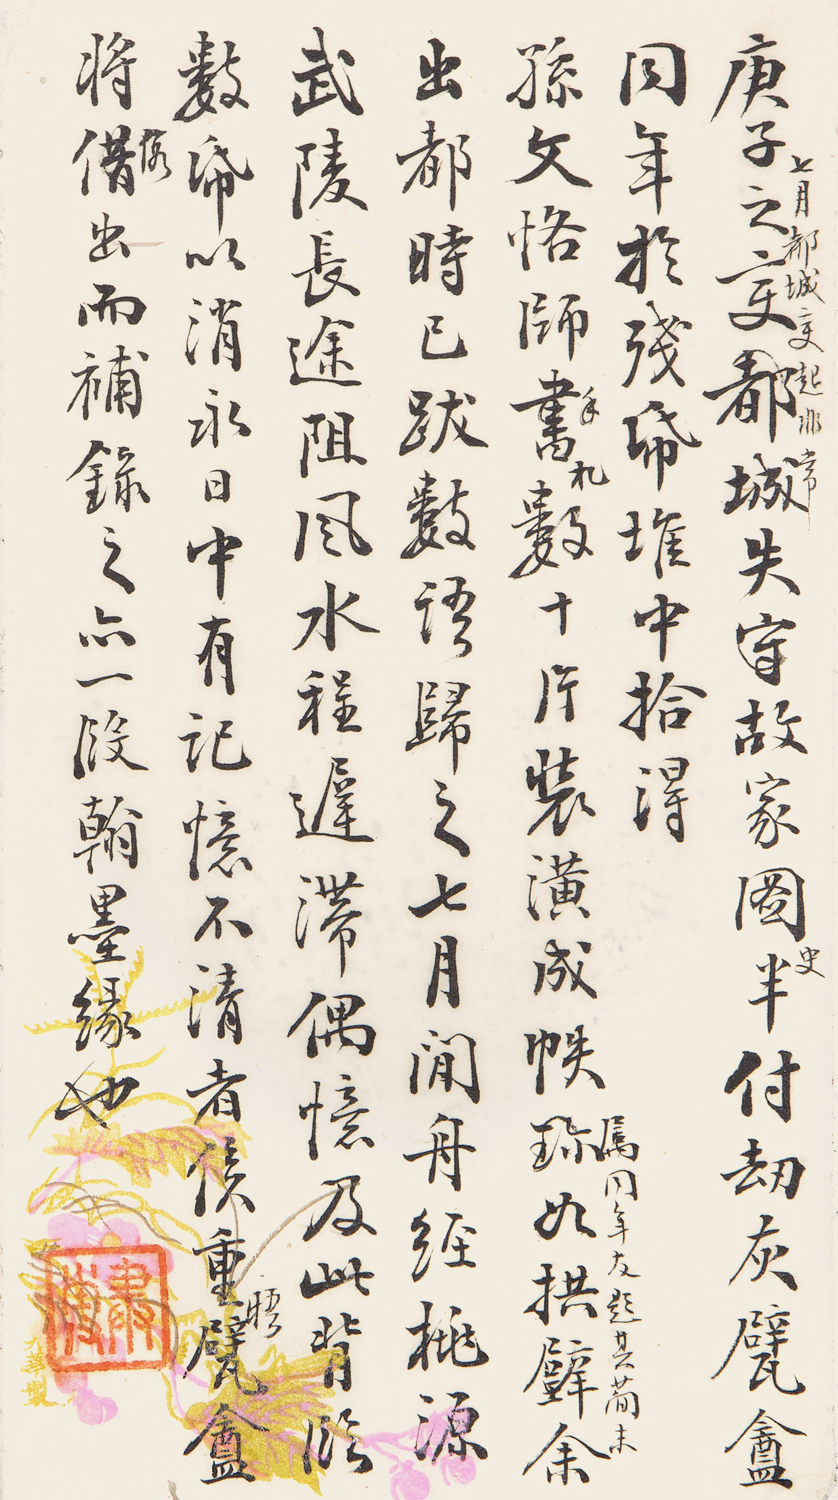 庚子之變都城失守故家圖半付劫灰甓盦
七月都城變起非常
史
同年於殘帋堆中拾得
孫文恪師書數十片裝潢成帙珍如拱璧余
手札
属同年友題其簡末
出都時已跋數語歸之七月閒舟經桃源
武陵長途阻風水程遲滯偶憶及此背臨
數帋以消永日中有記憶不清者俟重甓盦
晤
將借出而補錄之亦一段翰墨緣也
九華製